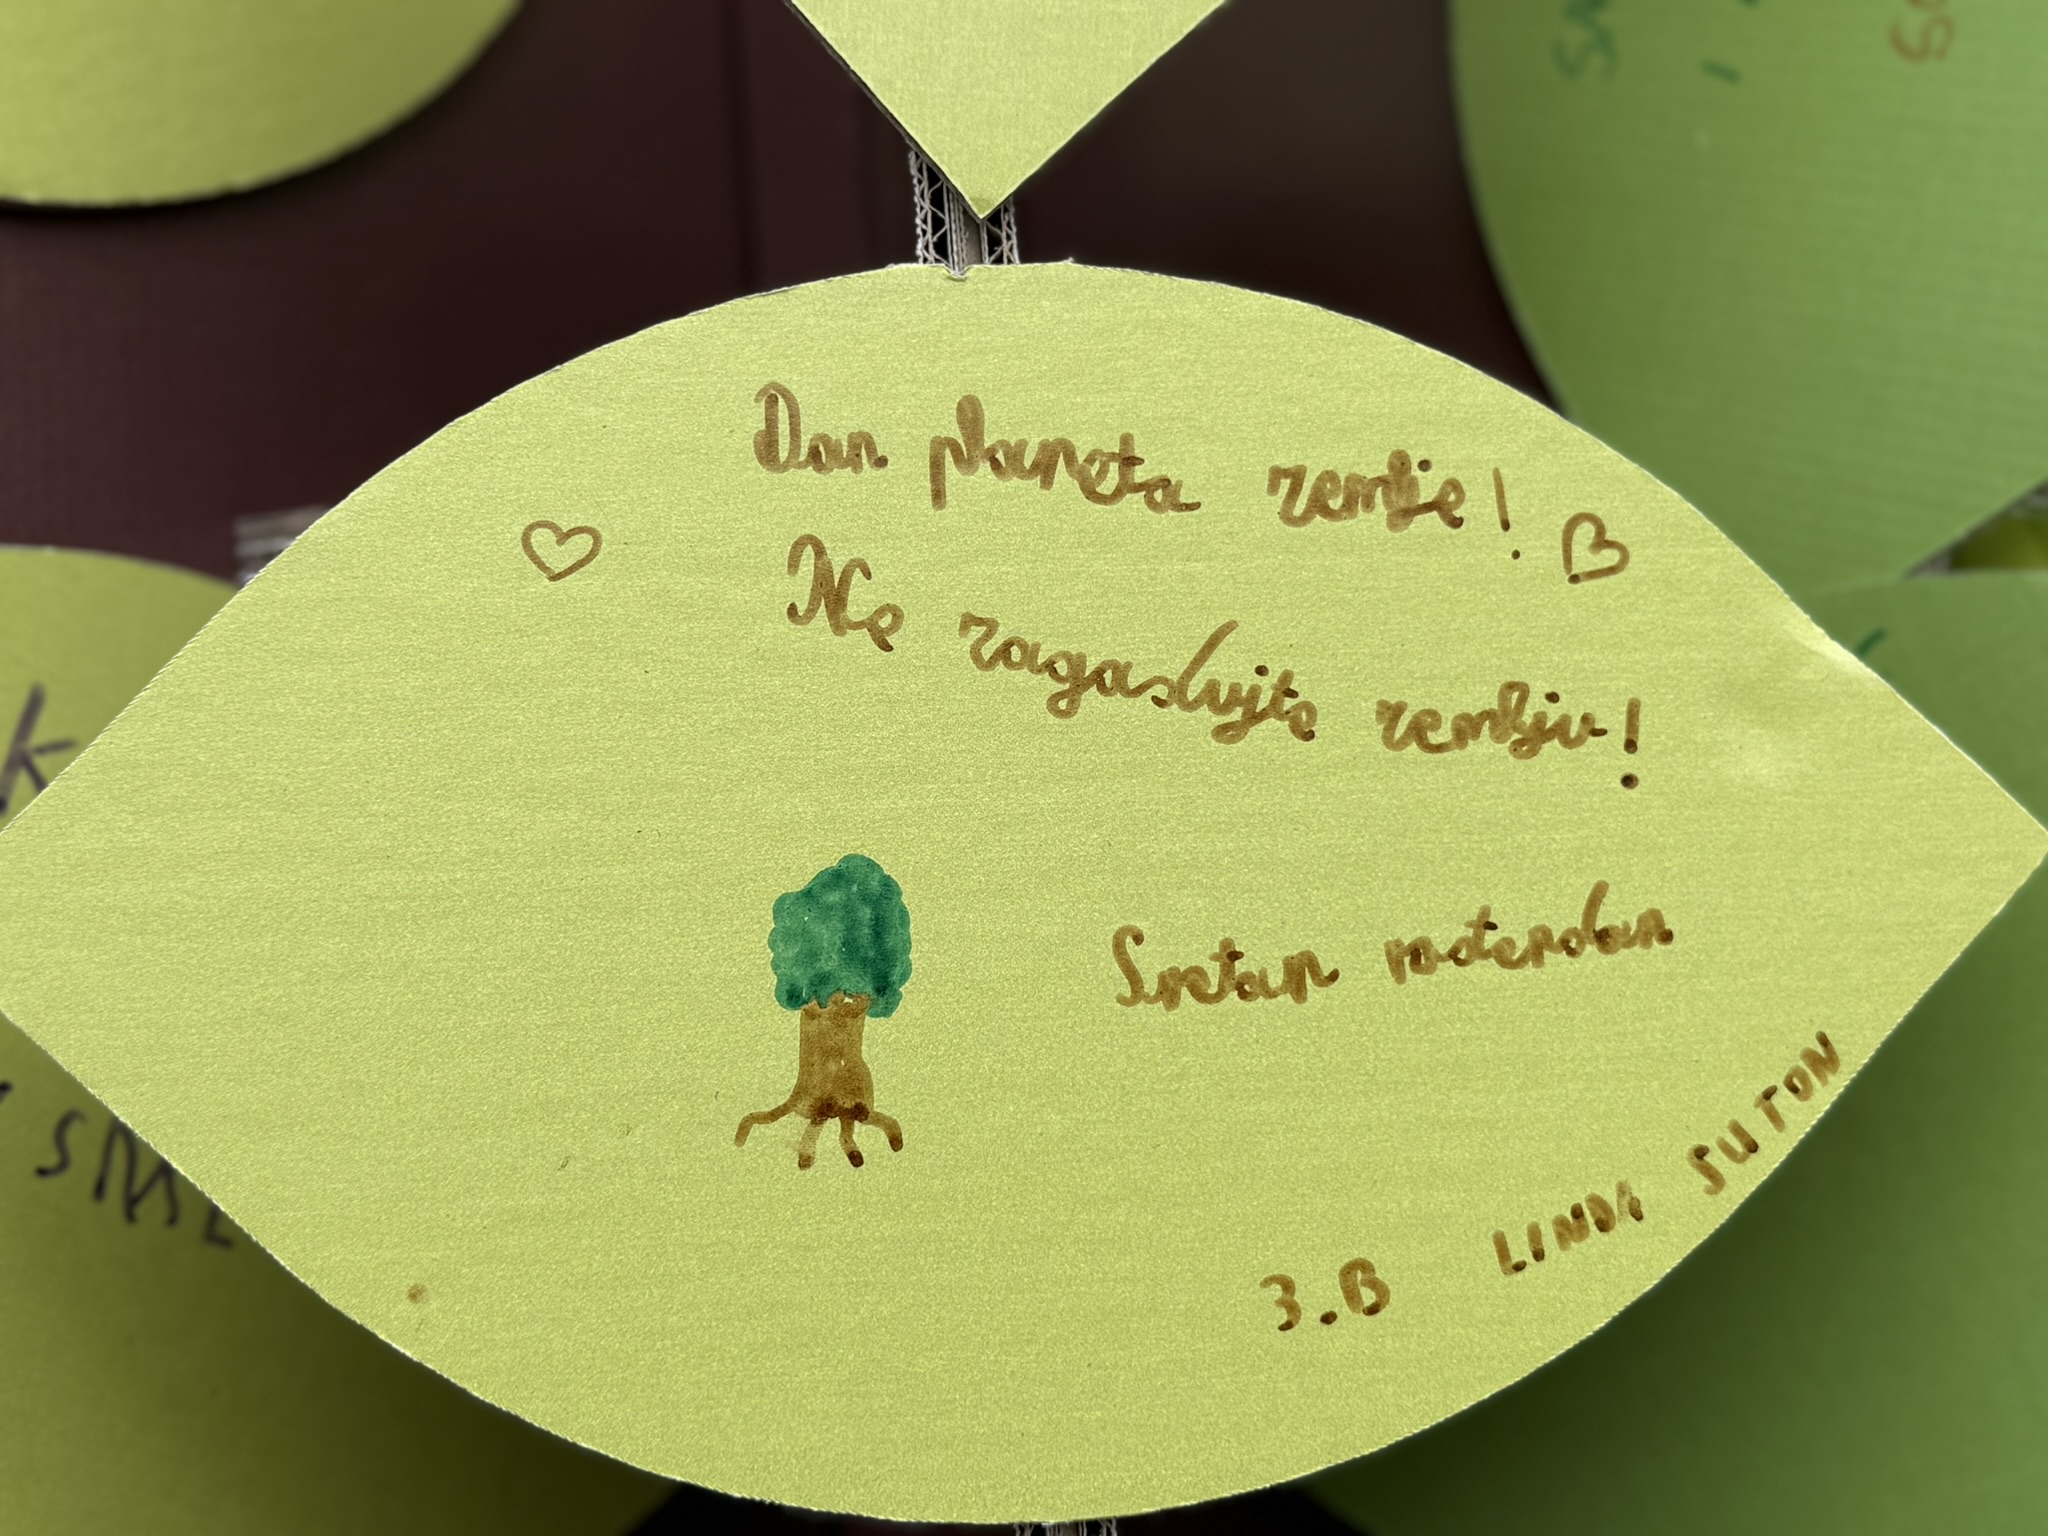 Dan planeta zemlje!
Ne zagasdujte zemlju!
Sretan roterdan
3.B LINDA SUTON